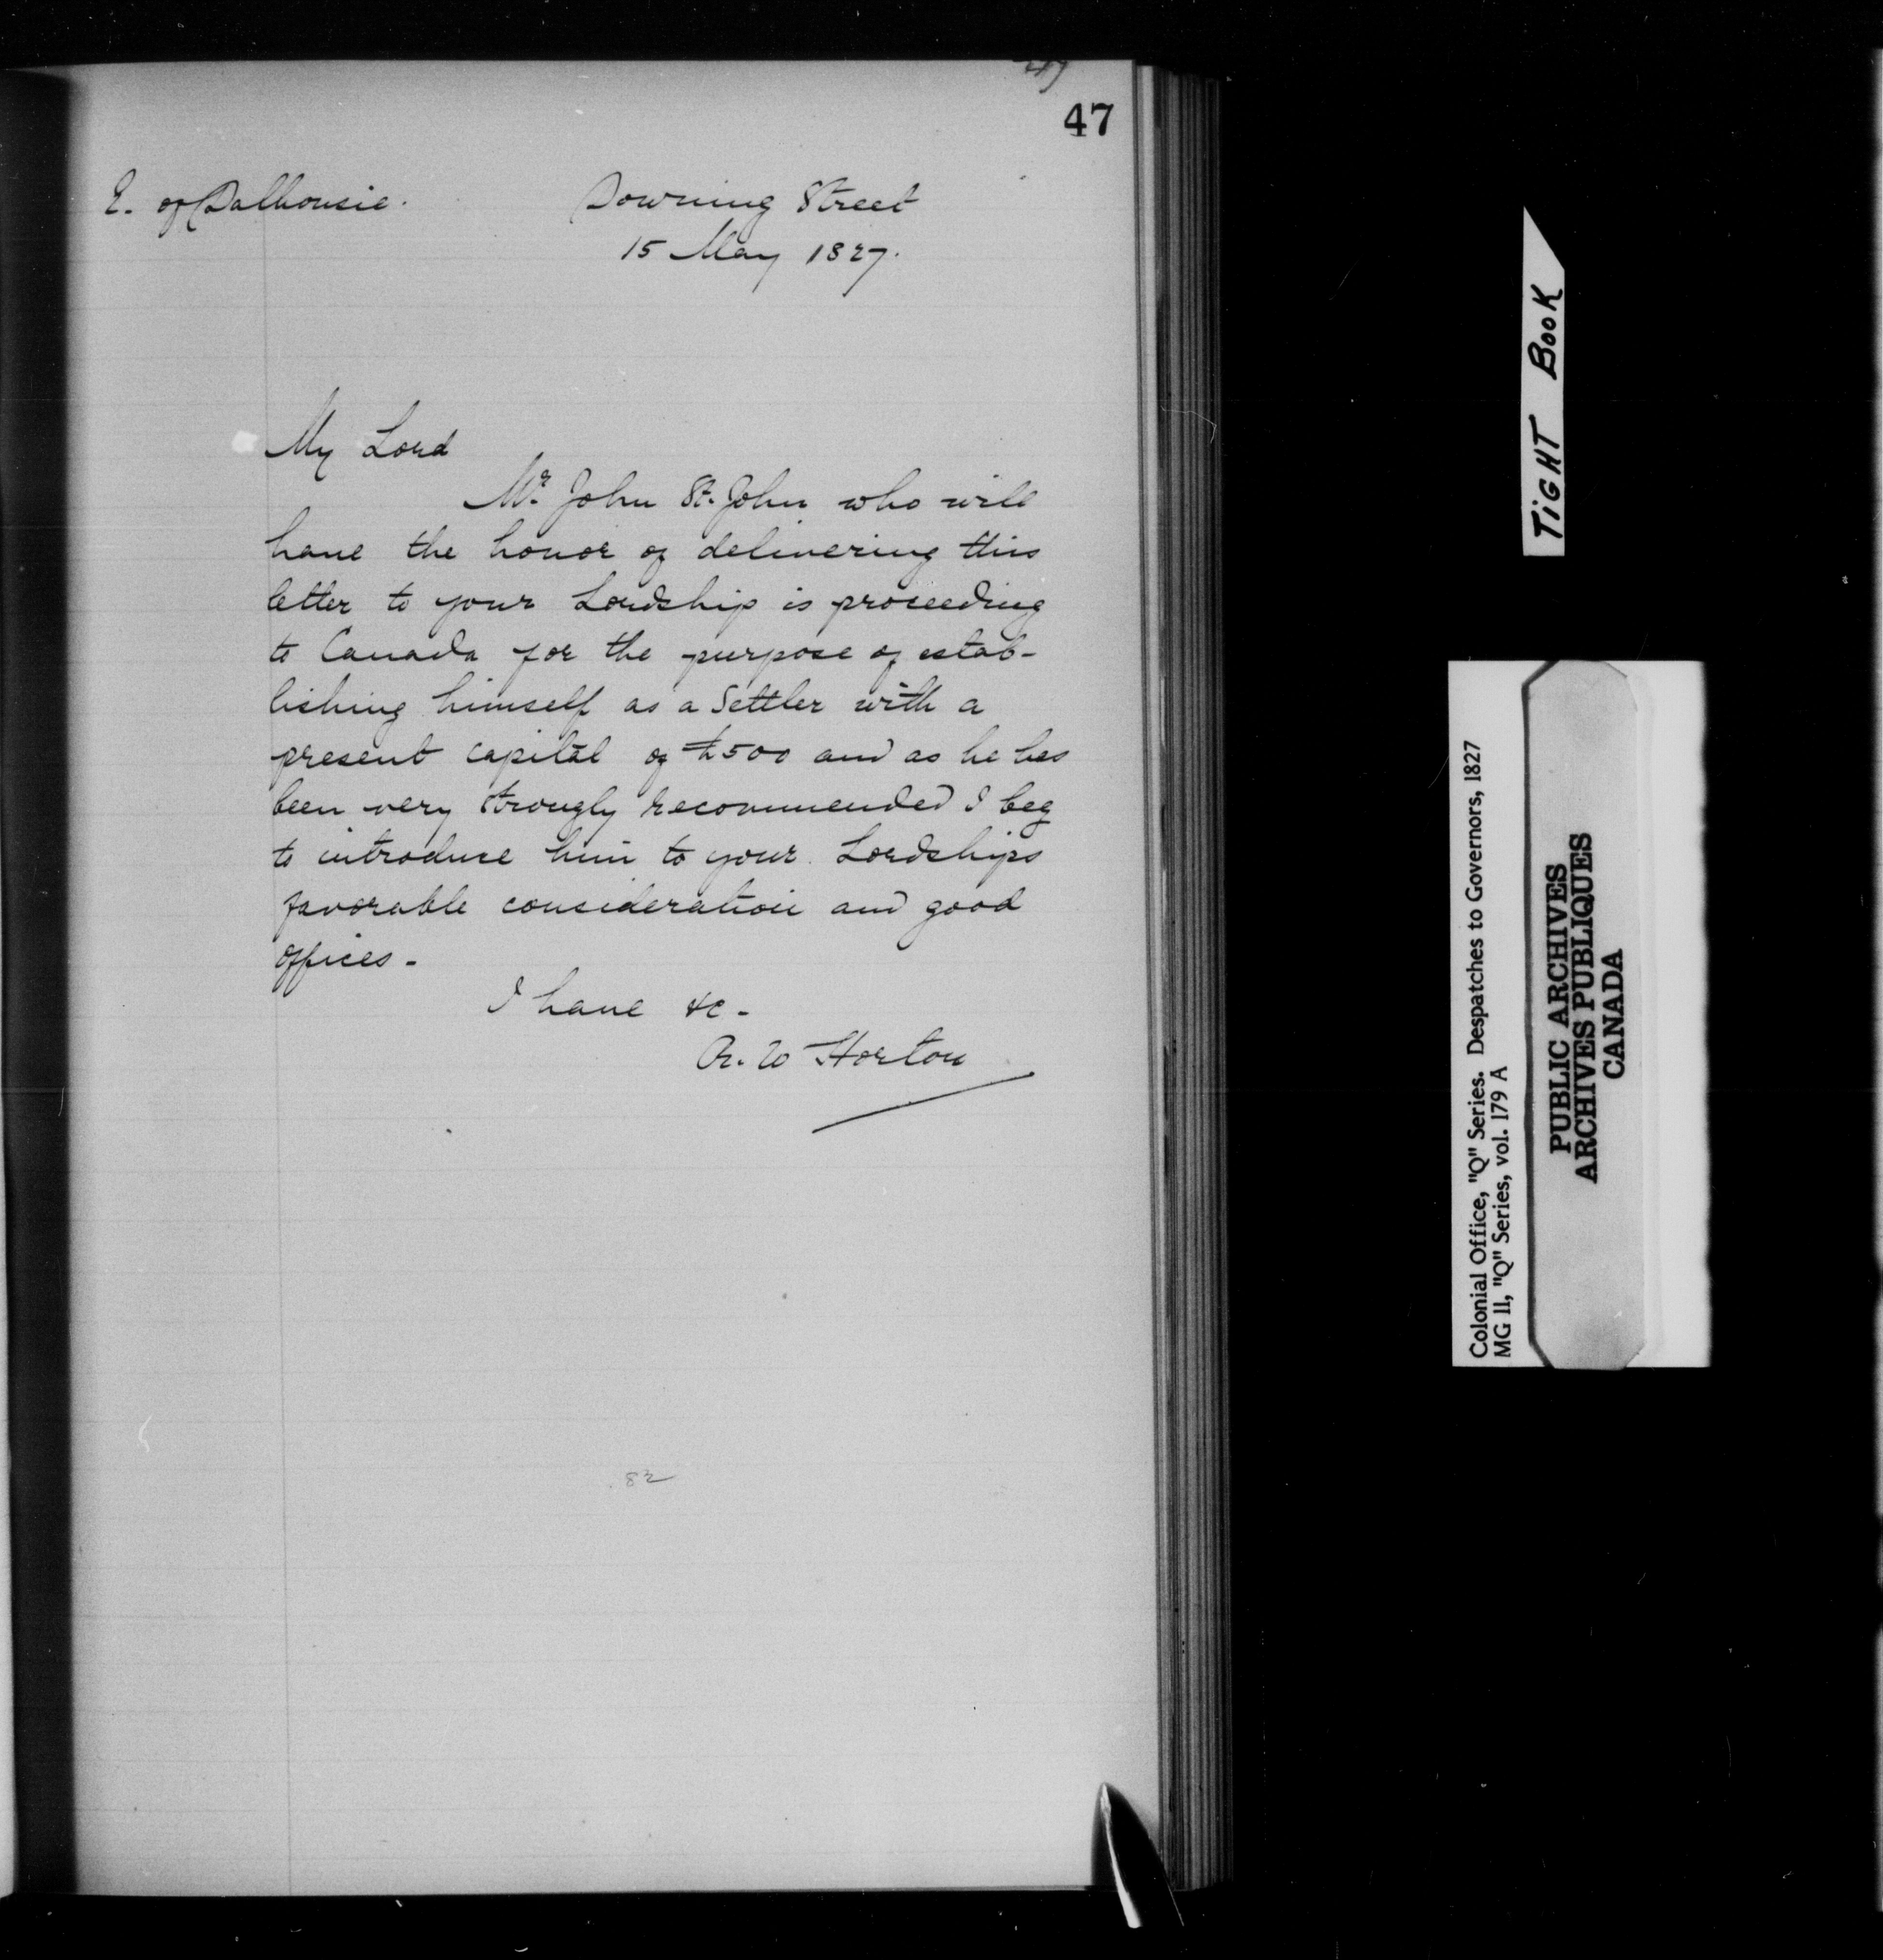 47
E. of Dalhousie.
Downing Street
15 May 1827.
My Lord
Mr. John St. John who will
have the honor of delivering this
letter to your Lordship is proceeding
to Canada for the purpose of estab-
lishing himself as a Settler with a
present capital of £500 and as he has
been very strongly recommended I beg
to introduce him to your Lordships
favorable consideration and good
offices -
I have &c -
R. W Horton
82
TIGHT BOOK
Colonial Office, "Q" Series. Despatches to Governors, 1827
MG 11, "Q" Series, vol. 179 A
PUBLIC ARCHIVES
ARCHIVES PUBLIQUES
CANADA